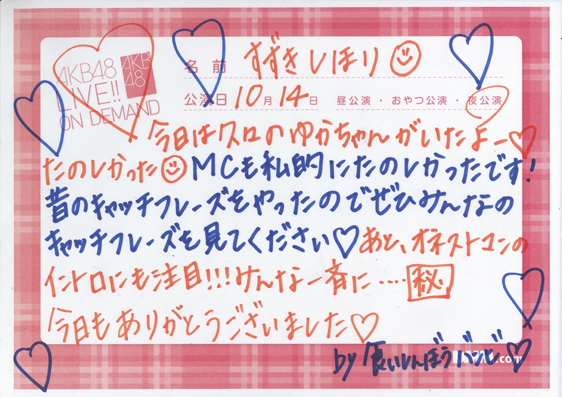 AKB48
LIVE!!
ON DEMAND
AKB
48
名前 すずきしほり
公演日 10月14日 昼公演・おやつ公演・夜公演
今日は久々のゆかちゃんがいたよー♡
たのしかった☺ MCも私的にたのしかったです!
昔のキャッチフレーズをやったのでぜひみんなの
キャッチフレーズを見てください♡あと、オネストマンの
イントロにも注目!!!みんな一斉に‥‥㊙
今日もありがとうございました♡
by 食いしんぼうバンビ♡
.com